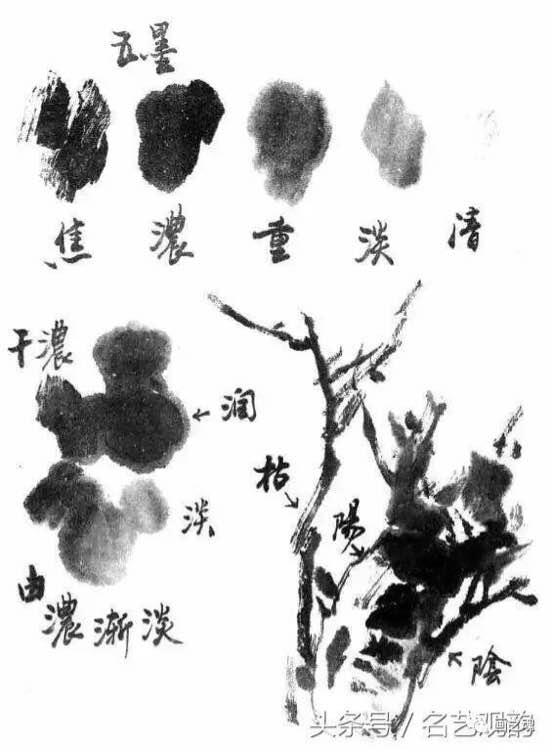 五墨
焦 濃 重 淡 清
干濃
润
淡
由濃漸淡
枯
陽
陰
头条号 / 名艺观韵